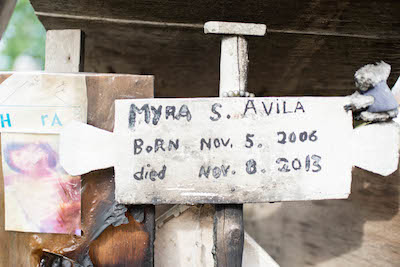 MYRA S. AVILA
BORN NOV. 5. 2006
died NOV. 8. 2013